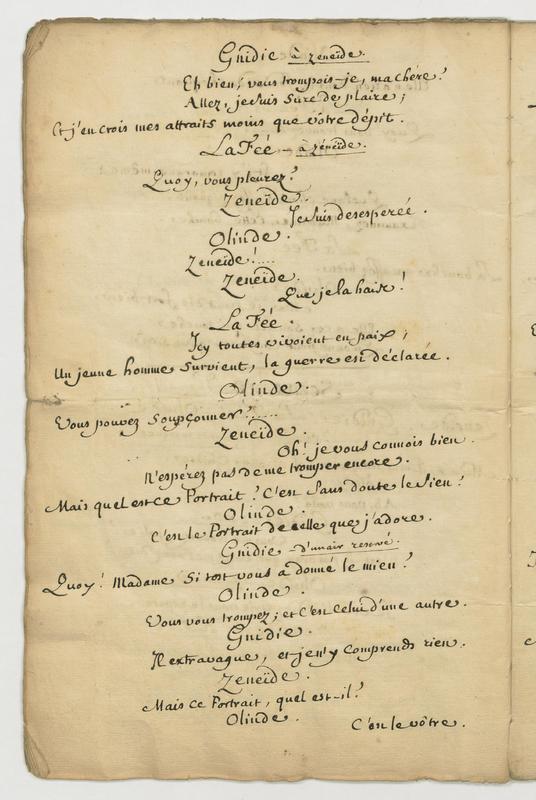 Gnidie à zeneïde.
Eh bien! vous trompois-je, ma chére?
Allez, je suis sure de plaire;
Et j'en crois mes attraits moins que vôtre dépit.
La Feé - à zéneïde.
Quoy, vous pleurez?
Zeneïde.
Je suis desesperée.
Olinde.
Zeneïde!....
Zeneïde.
Que je la haïx!
La Feé.
Icy toutes vivoient en paix;
Un jeune homme survient, la guerre est déclarée.
Olinde.
Vous pouvez soupçonner?.....
Zeneïde.
Oh! je vous connois bien.
N'espérez pas de me tromper encore.
Mais quel est ce Portrait? C'est sans doute le sien?
Olinde.
C'est le Portrait de celle que j'adore.
Gnidie - d'un air
Quoy! Madame si tost vous a donné le mien?
Olinde.
Vous vous trompez; et c'est celui d'une autre.
Gnidie.
Il extravague, et je n'y comprends rien.
Zeneïde.
Mais ce Portrait, quel est-il?
Olinde.
C'est le vôtre.